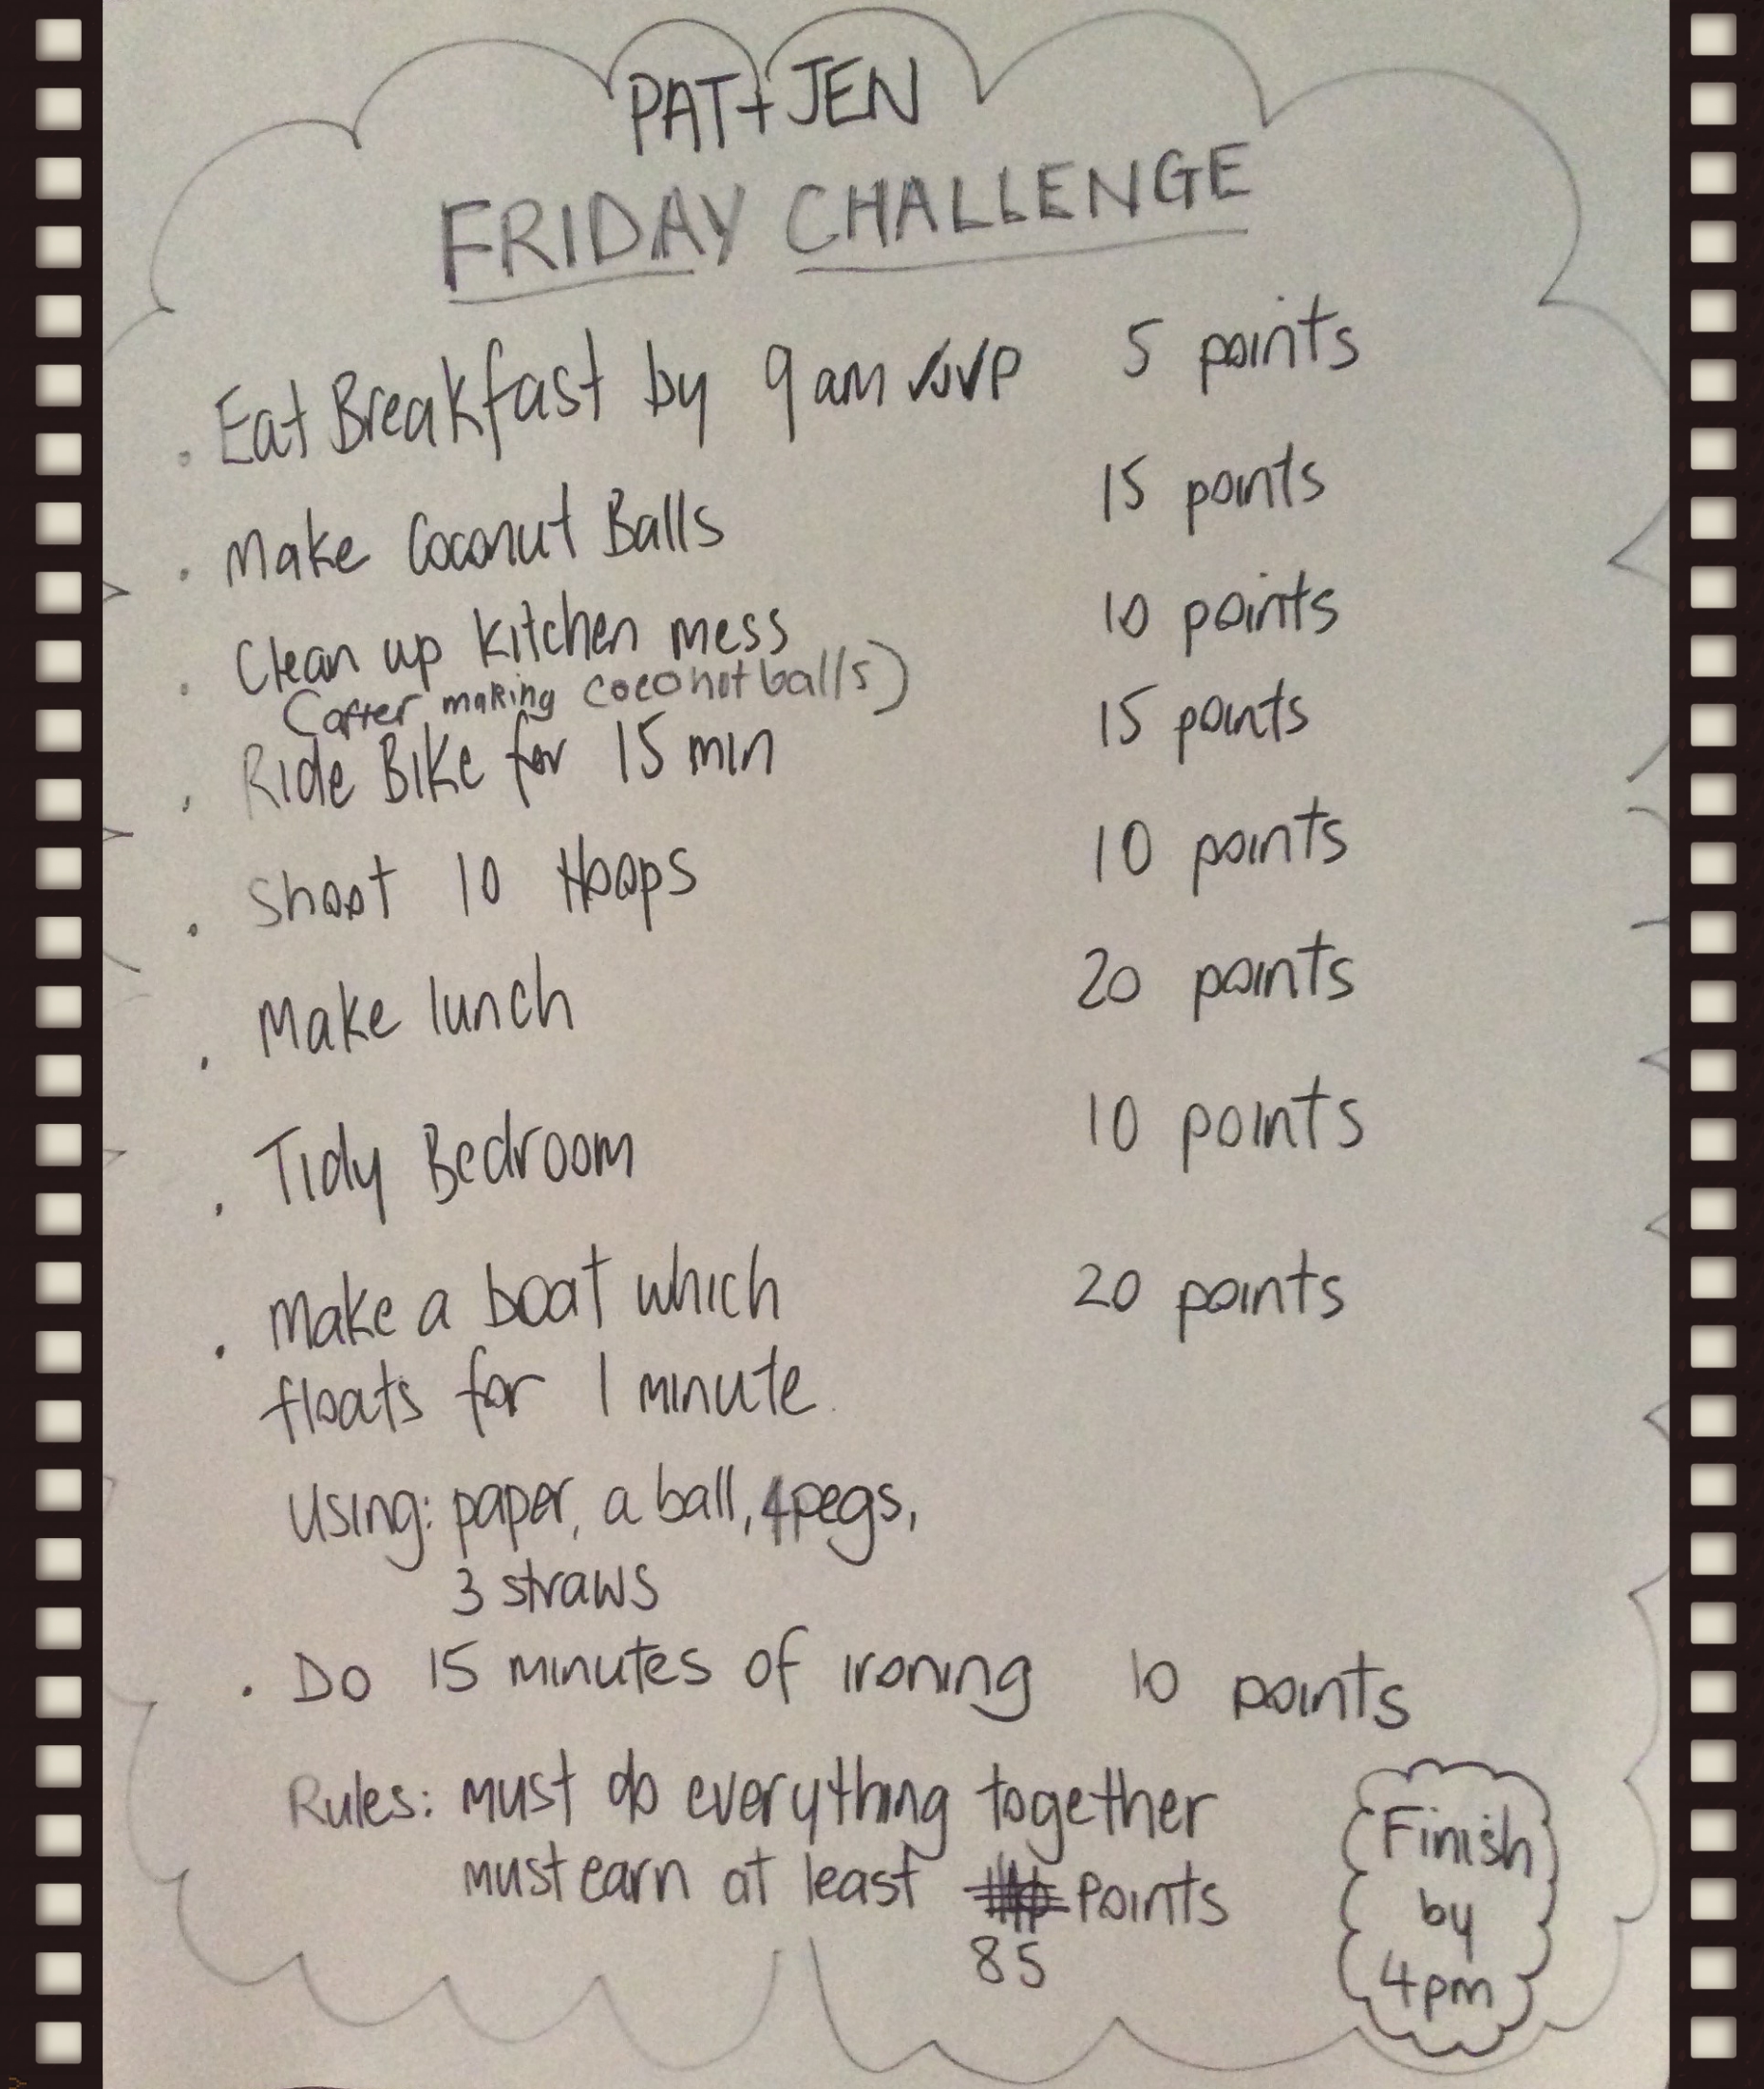 PAT + JEN
FRIDAY CHALLENGE
. Eat Breakfast by 9am 5 points
. Make Coconut Balls 15 points
. Clean up kitchen mess 10 points
(after making coconot balls)
. Ride Bike for 15 min 15 points
. Shoot 10 Hoops 10 points
. Make lunch 20 points
. Tidy Bedroom 10 points
. Make a boat which 20 points
floats for 1 minute.
Using: paper, a ball, 4 pegs,
3 straws
. Do 15 minutes of ironing 10 points
Rules: must do everything together
must earn at least Points
85
Finish
by
4pm